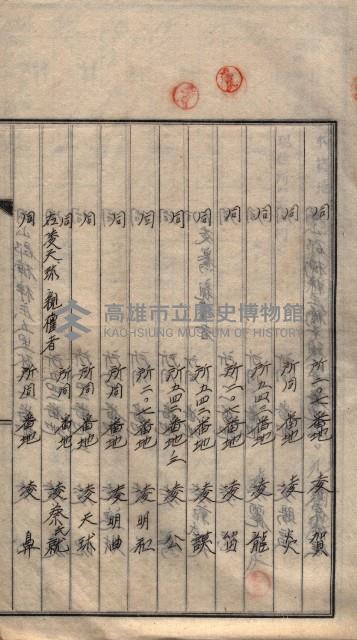 同 所二〇七番地 凌賀
同 所同番地 凌炎
同 所五四三番地 凌龍
同 所二〇八番地 凌笛
同 所五四三番地 凌讃
同 所五四三番地ノ三 凌公
同 所二〇七番地 凌明和
同 所同番地 凌明曲
同 所同番地 凌天球
同 所同番地 凌蔡氏就
左凌天球親權者
同 所同番地 凌鼻
高雄市立歷史博物館
KAOHSIUNG MUSEUM OF HISTORY